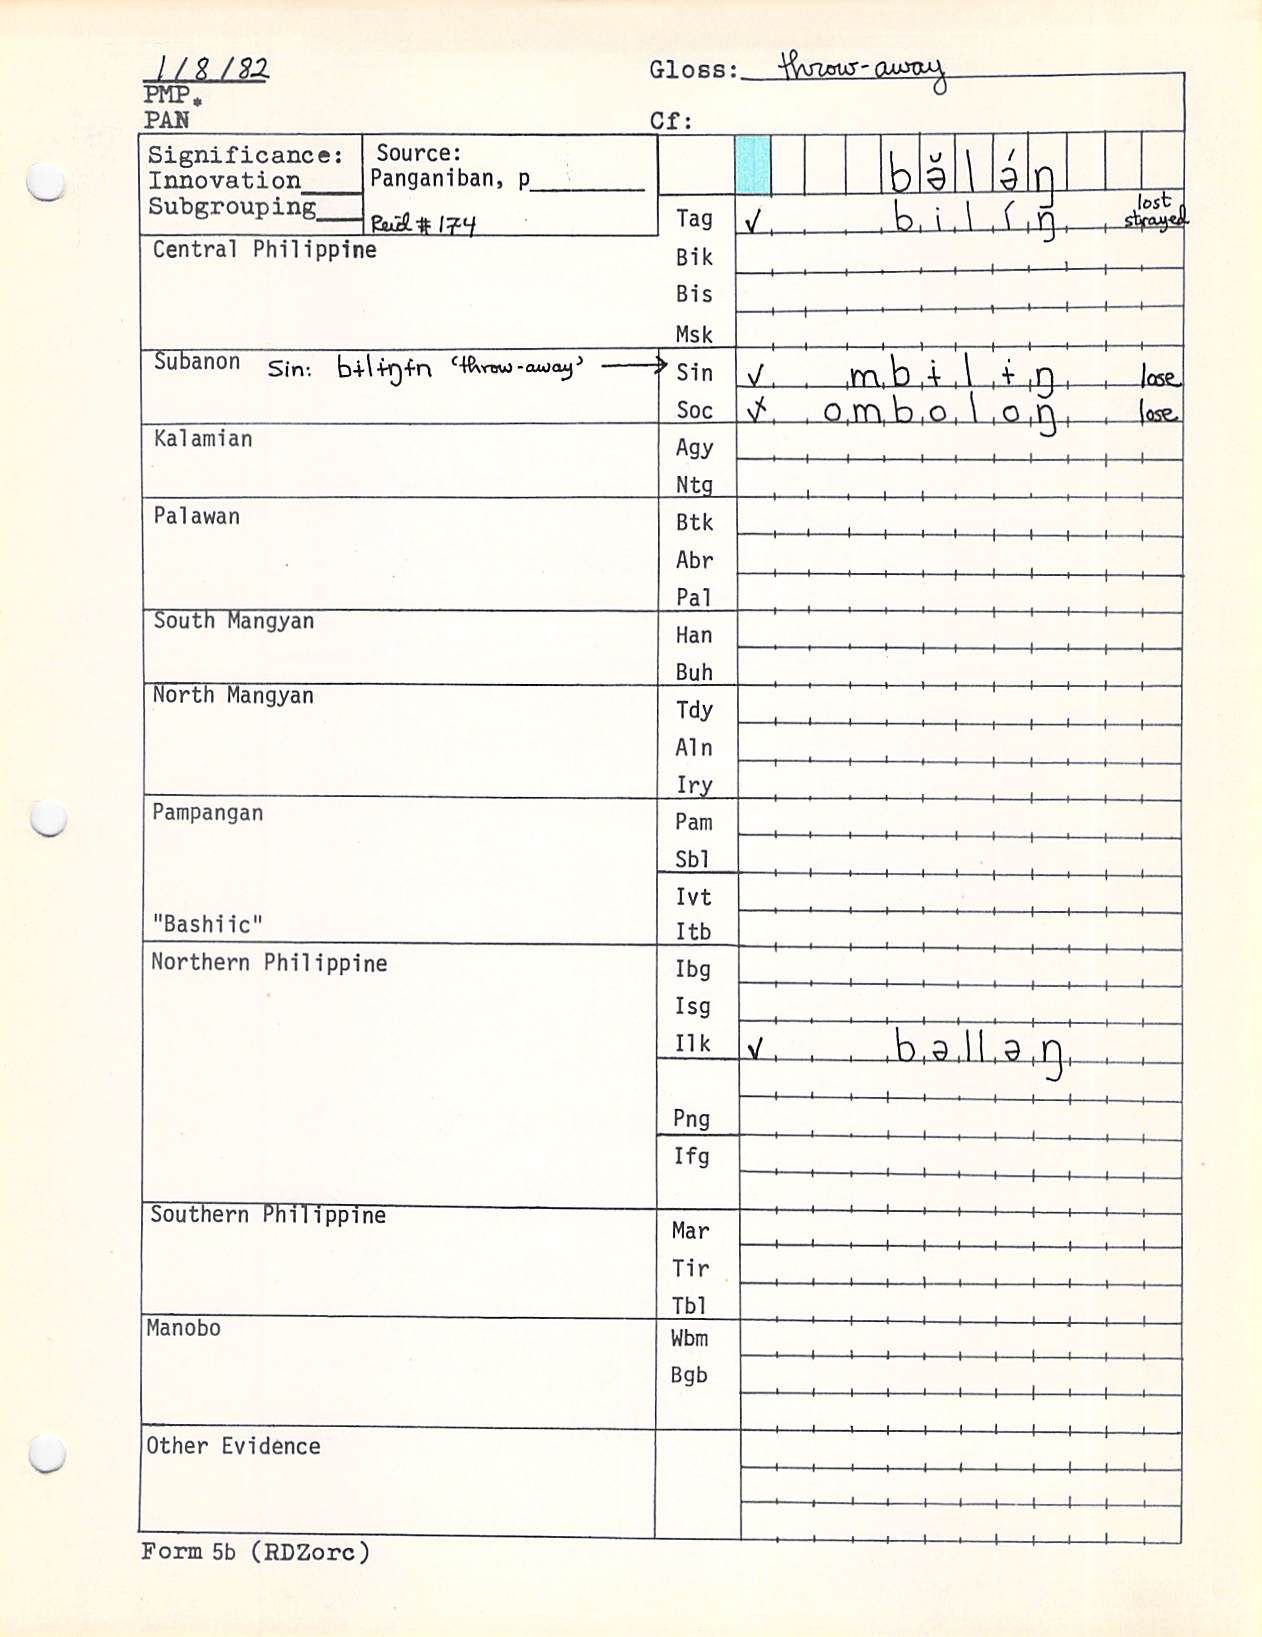 1/8/82 Gloss: throw-away
PMP*
PAN Cf:
Significance: Source:
Innovation____ Panganiban, p________ bə̆lə́ŋ
Subgrouping___ Reid #174
Tag ✓ bilíŋ lost strayed
Central Philippine
Bik
Bis
Msk
Subanon Sin: bɨlɨŋɨn ‘throw-away’ → Sin ✓ mbɨlɨŋ lose
Soc ✓ omboloŋ lose
Kalamian
Agy
Ntg
Palawan
Btk
Abr
Pal
South Mangyan
Han
Buh
North Mangyan
Tdy
Aln
Iry
Pampangan
Pam
Sbl
Ivt
"Bashiic"
Itb
Northern Philippine
Ibg
Isg
Ilk ✓ bəlləŋ
Png
Ifg
Southern Philippine
Mar
Tir
Tbl
Manobo
Wbm
Bgb
Other Evidence
Form 5b (RDZorc)